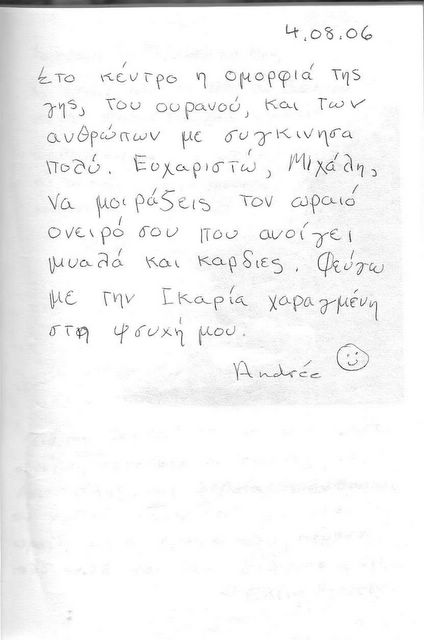 4.08.06
Στο κέντρο η ομορφιά της
γης, του ουρανού, και των
ανθρώπων με συγκινησα
πολύ. Ευχαριστώ, Μιχάλη,
να μοιράξεις τον ωραιό
ονειρό σου που ανοίγει
μυαλά και καρδιες. Φεύγω
με την Ικαρία χαραγμένη
στη ψσυχή μου.
Andrée